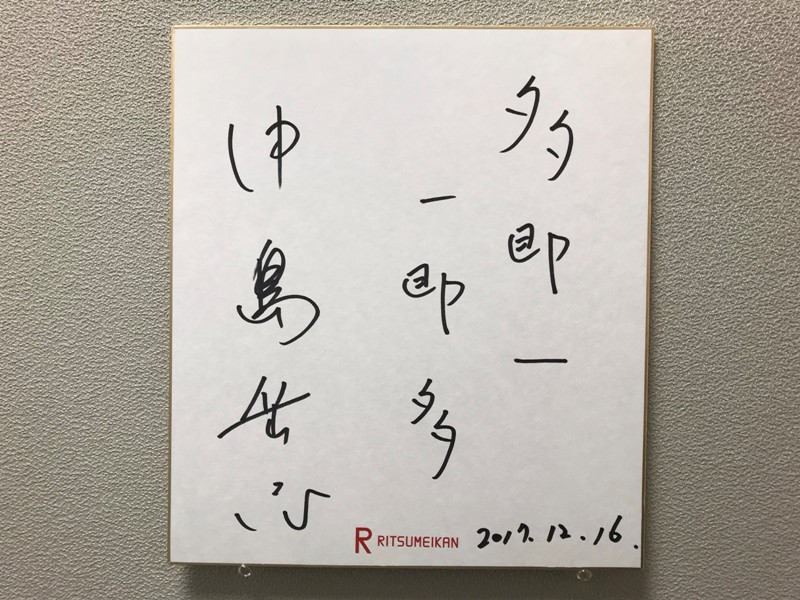 多即一
一即多
中島岳志
R RITSUMEIKAN
2017.12.16.